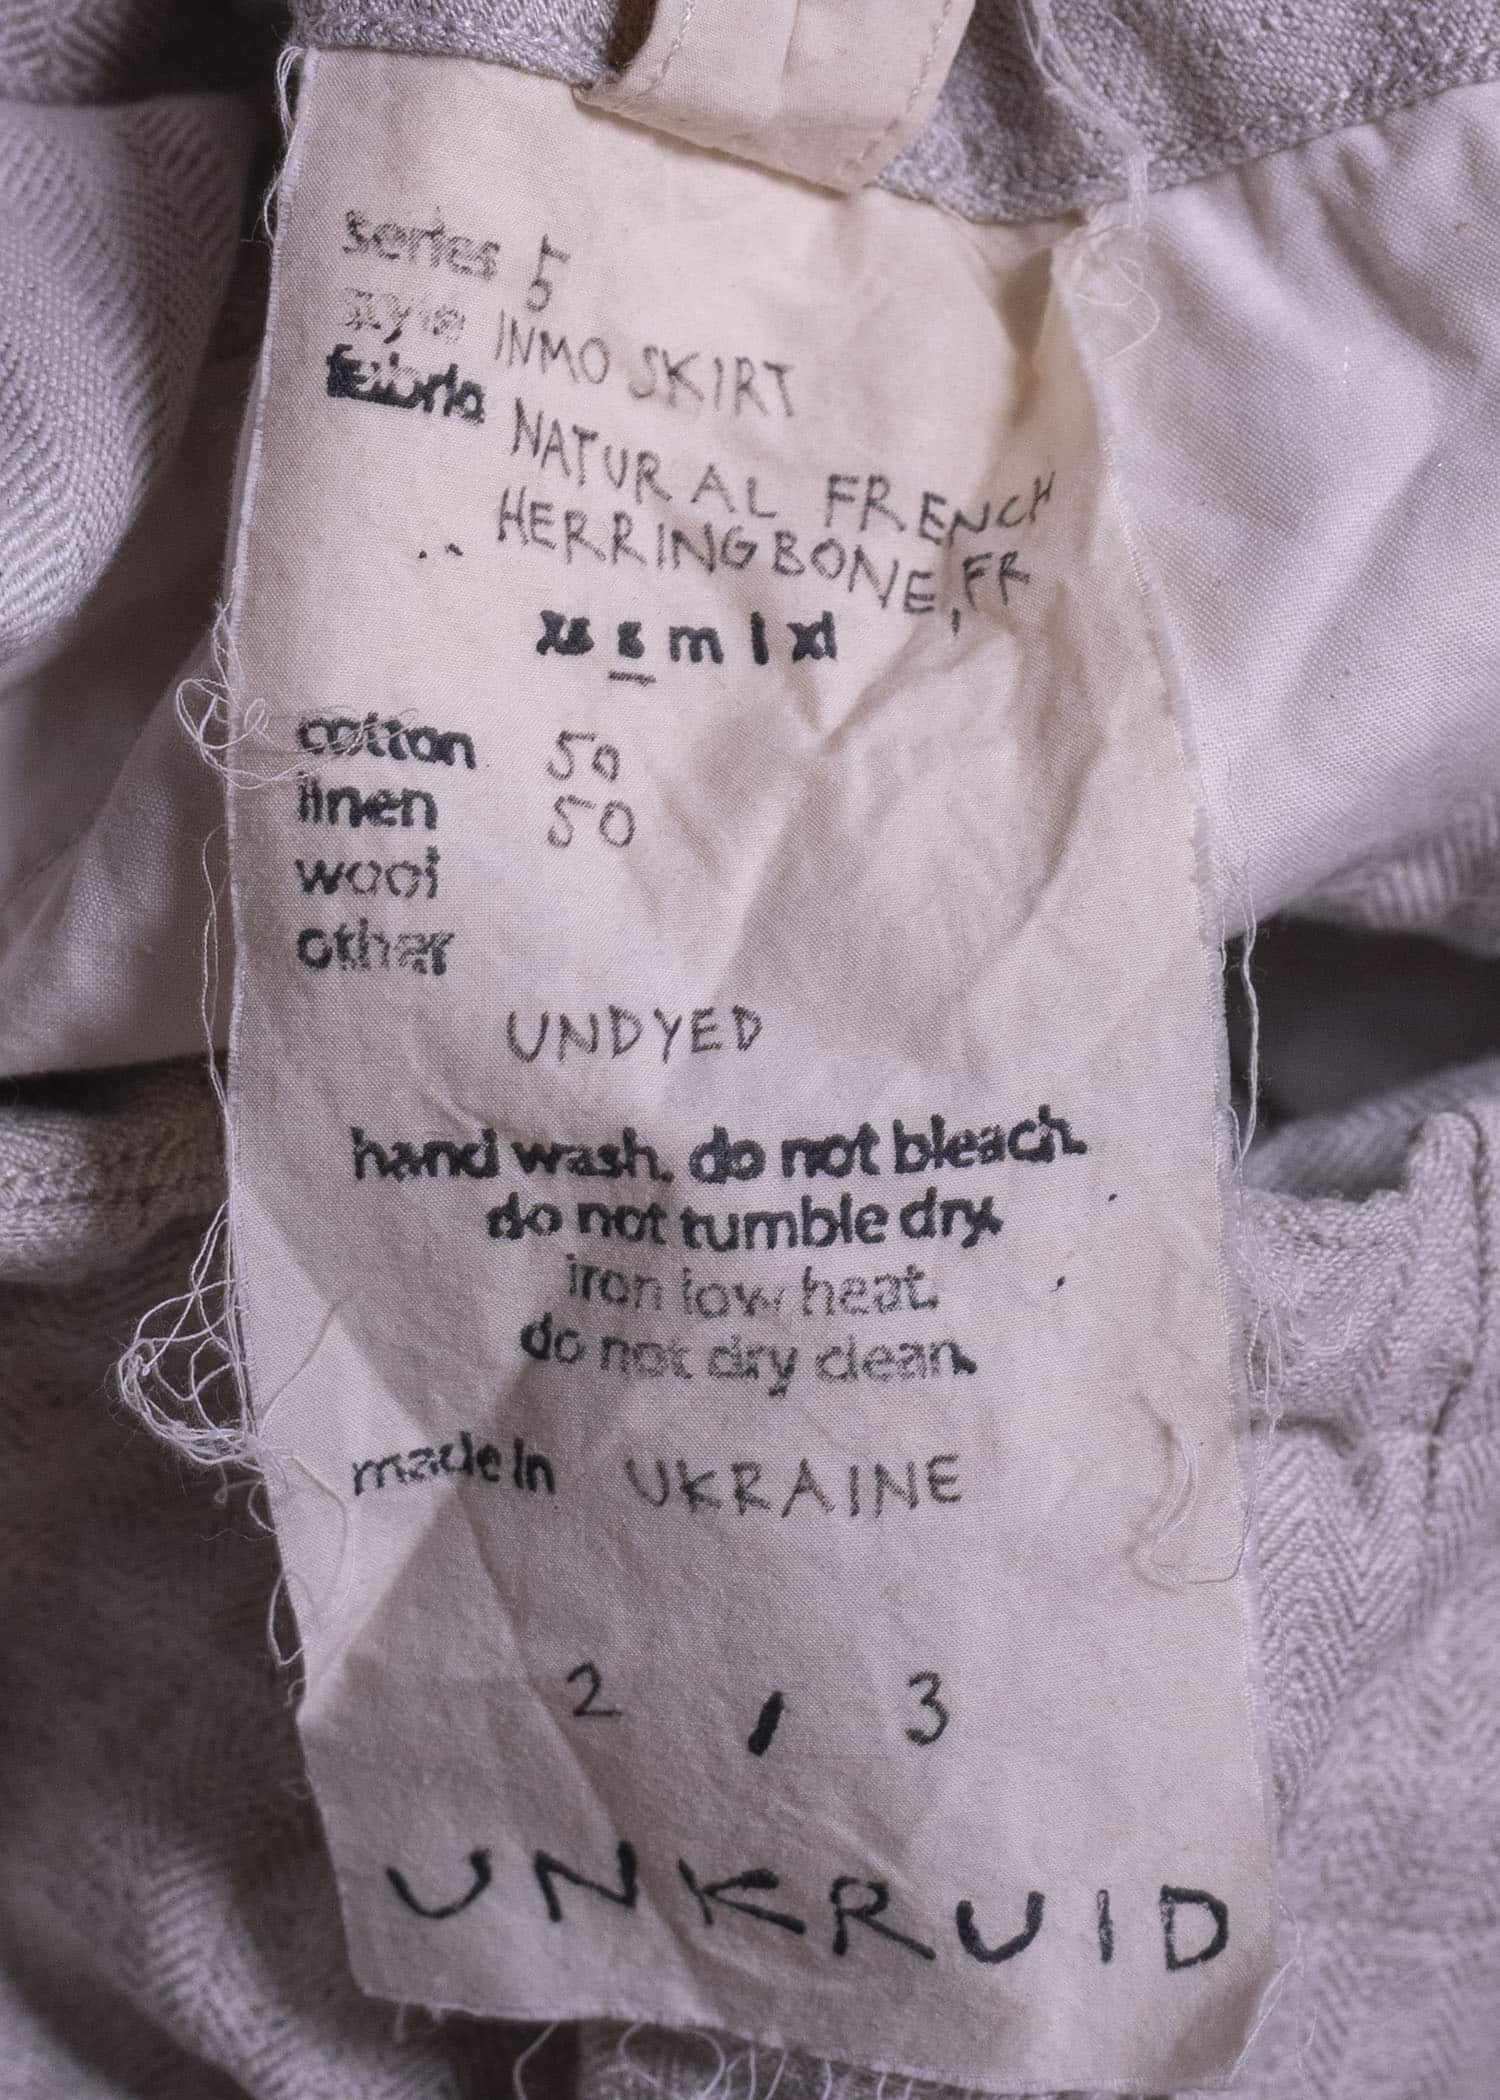 series 5
style INMO SKIRT
fabric NATURAL FRENCH
HERRINGBONE, FR
xs s m l xl
cotton 50
linen 50
wool
other
UNDYED
hand wash. do not bleach.
do not tumble dry.
iron low heat.
do not dry clean.
made in UKRAINE
2 / 3
UNKRUID